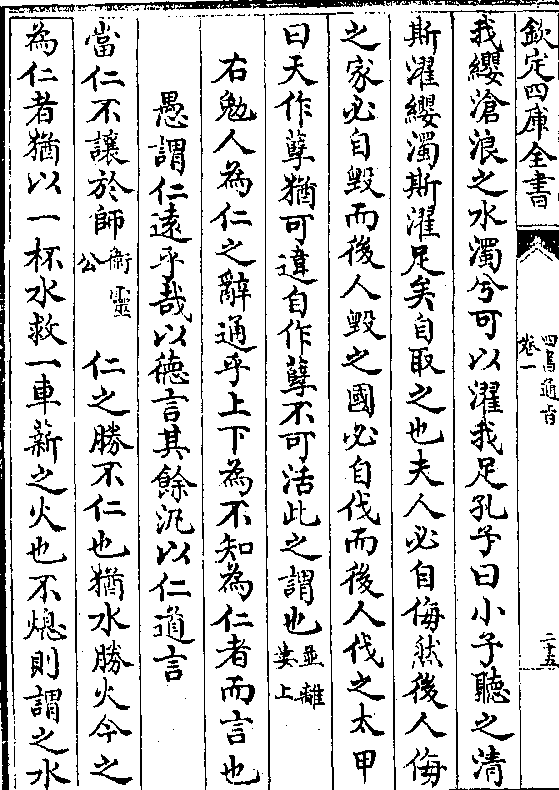 欽定四庫全書
四書通旨
卷一
二十五
我纓滄浪之水濁兮可以濯我足孔子曰小子聽之清
斯濯纓濁斯濯足矣自取之也夫人必自侮然後人侮
之家必自毀而後人毀之國必自伐而後人伐之太甲
曰天作孽猶可違自作孽不可活此之謂也並離婁上
右勉人為仁之辭通乎上下為不知為仁者而言也
愚謂仁遠乎哉以德言其餘汎以仁道言
當仁不讓於師衛靈公 仁之勝不仁也猶水勝火今之
為仁者猶以一杯水救一車薪之火也不熄則謂之水